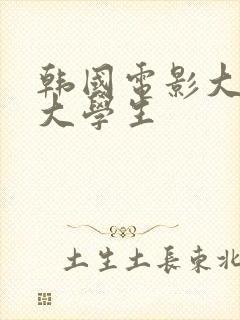 韩國電影大
大學生
土生土長東北